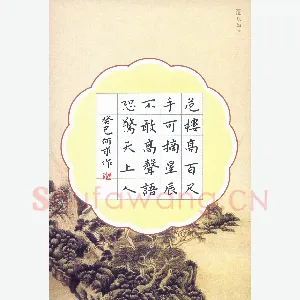 危樓高百尺
手可摘星辰
不敢高聲語
恐驚天上人
癸巳
作
Soufawang.CN